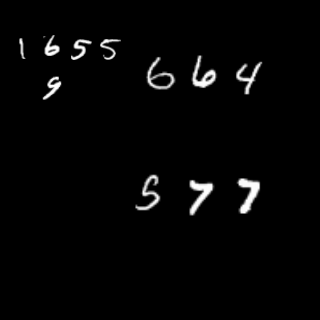 1655
9
664
577